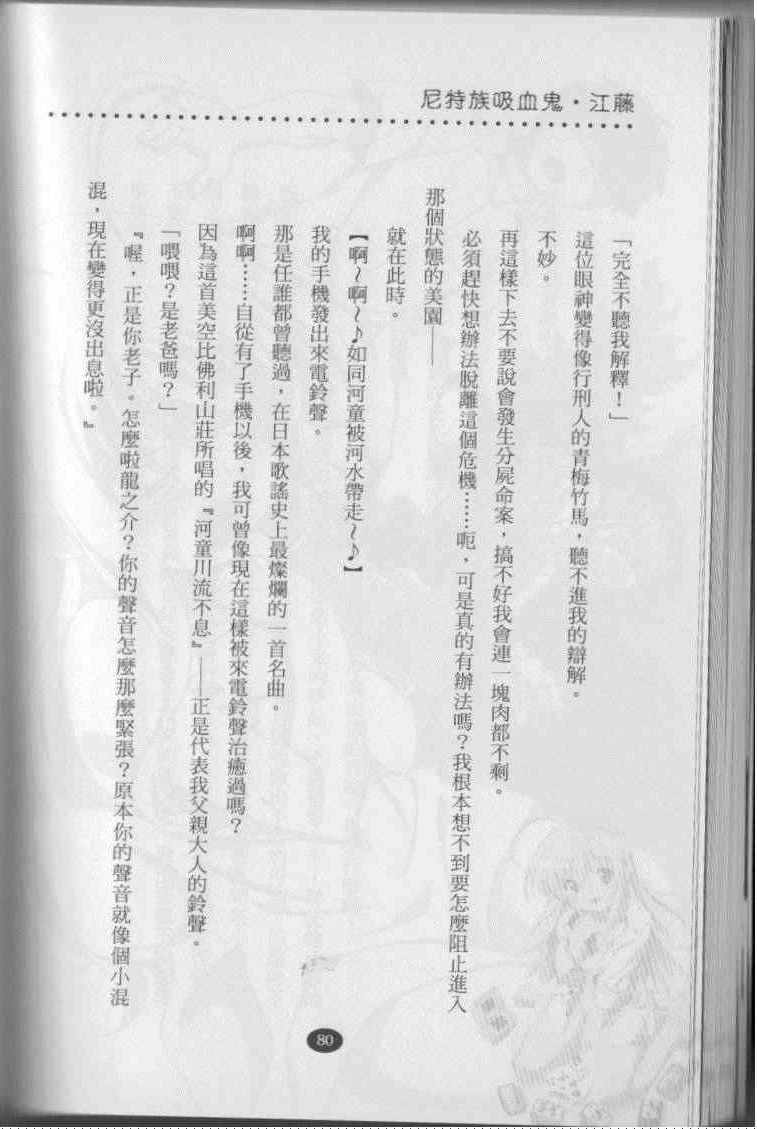 尼特族吸血鬼・江藤
「完全不聽我解釋！」
這位眼神變得像行刑人的青梅竹馬，聽不進我的辯解。
不妙。
再這樣下去不要說會發生分屍命案，搞不好我會連一塊肉都不剩。
必須趕快想辦法脫離這個危機……呃，可是真的有辦法嗎？我根本想不到要怎麼阻止進入
那個狀態的美園——
就在此時。
【啊～啊～♪如同河童被河水帶走～♪】
我的手機發出來電鈴聲。
那是任誰都曾聽過，在日本歌謠史上最燦爛的一首名曲。
啊啊……自從有了手機以後，我可曾像現在這樣被來電鈴聲治癒過嗎？
因為這首美空比佛利山莊所唱的『河童川流不息』——正是代表我父親大人的鈴聲。
「喂喂？是老爸嗎？」
『喔，正是你老子。怎麼啦龍之介？你的聲音怎麼那麼緊張？原本你的聲音就像個小混
混，現在變得更沒出息啦。』
80